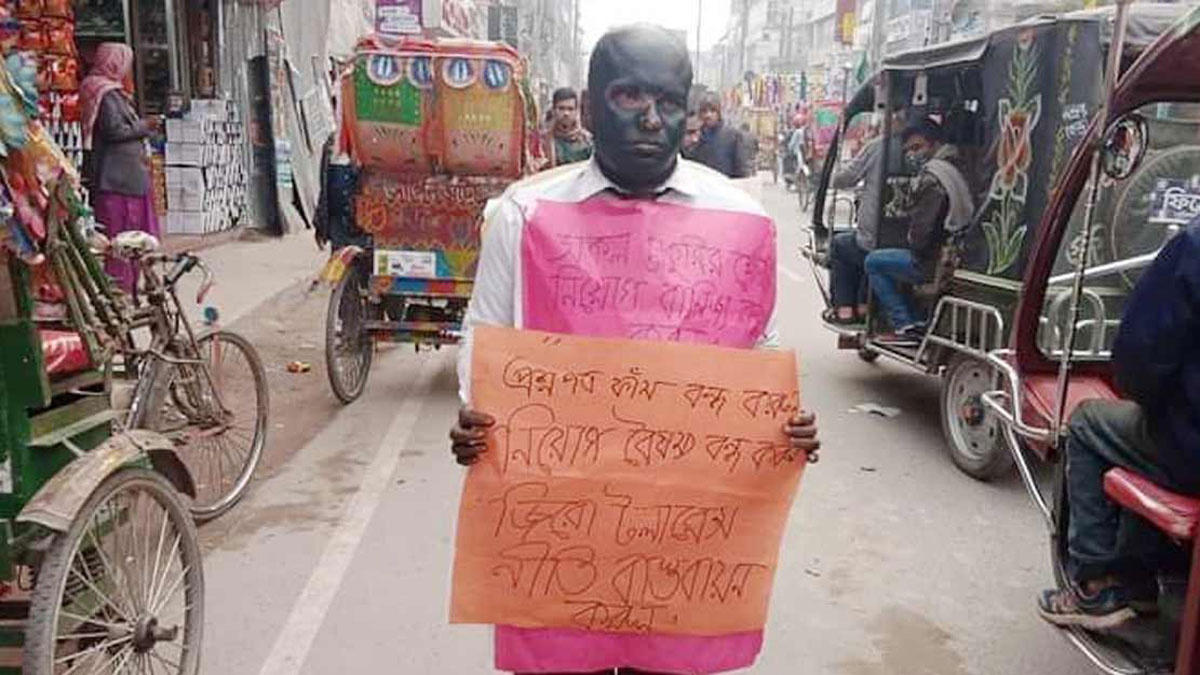 সকল চাকুরির ক্ষেত্রে
নিয়োগ বানিজ্য বন্ধ
করুন
প্রশ্ন পত্র ফাঁস বন্ধ করুন
নিয়োগ বৈষম্য বন্ধ করুন
জিরো টলারেন্স
নীতি বাস্তবায়ন
করুন